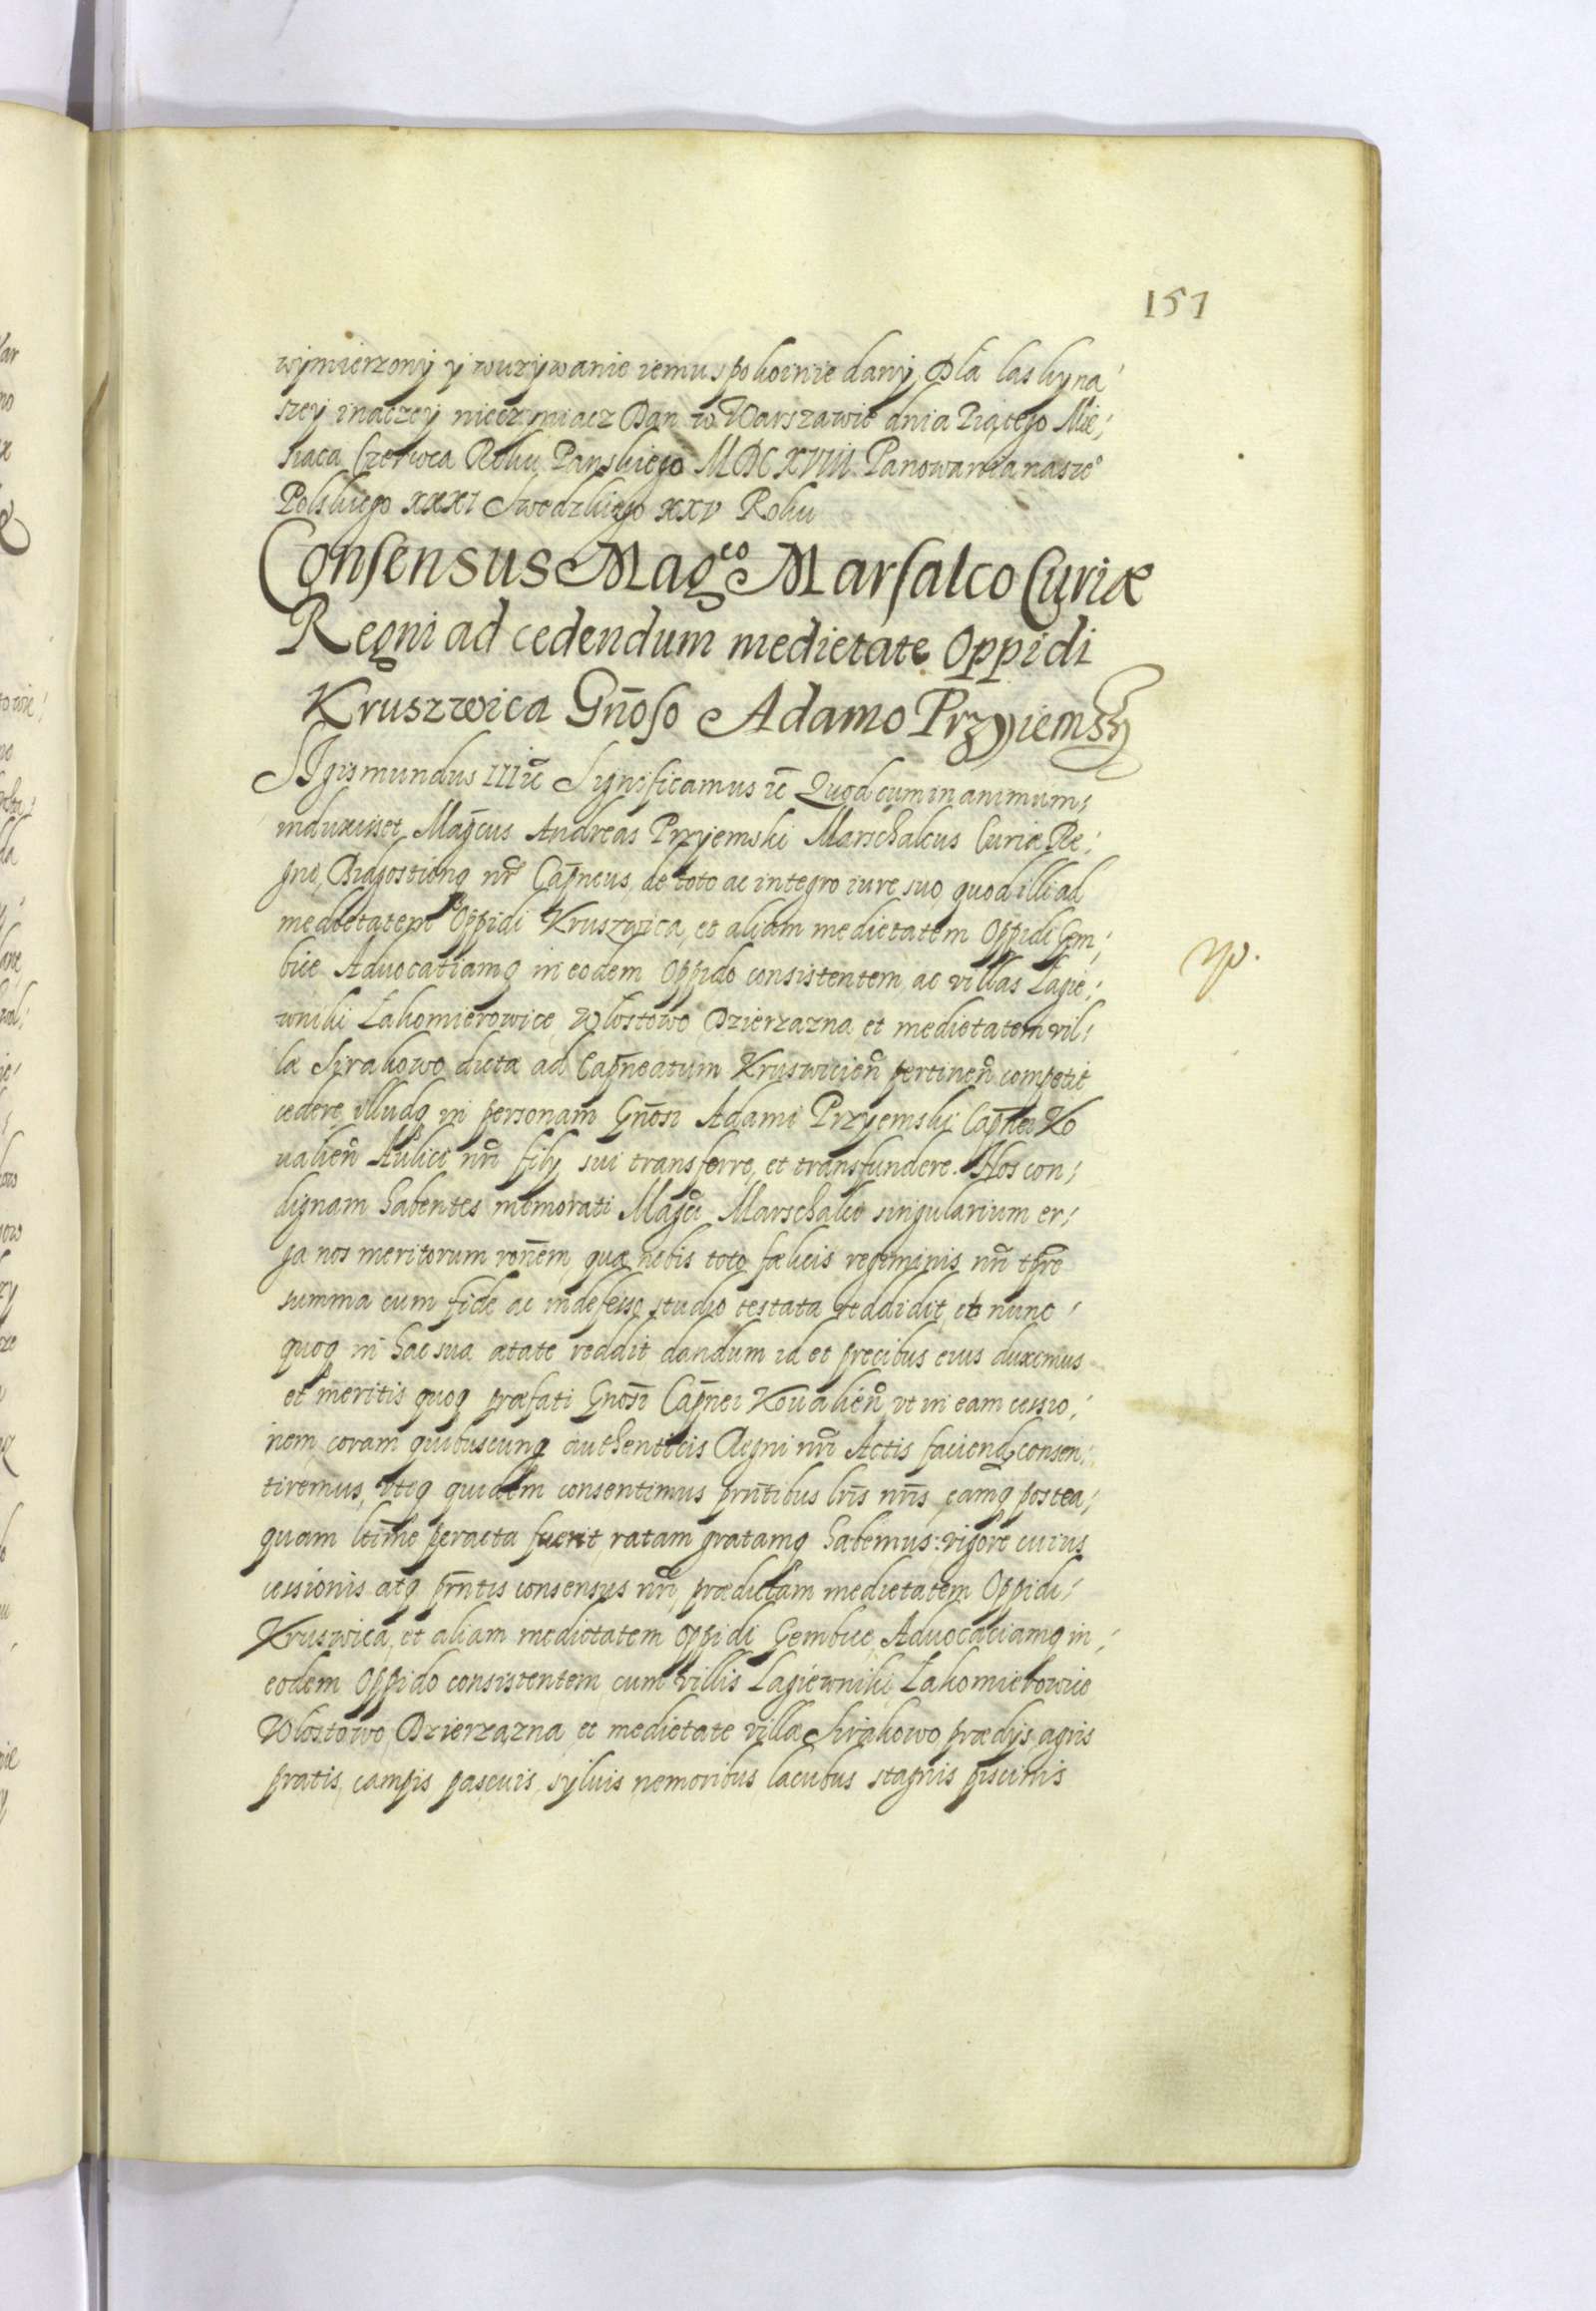 157
wymierzony y wuzywanie iemu spokoinie dany, Dla laskyna
szey inaczey nieczyniacz Dan w Warszawie dnia Piątego Mie,
siaca Czerwca Roku Panskiego MDCXVIII Panowania nasze°
Polskiego XXXI Swedzkiego XXV Roku
Consensus Mag.co Marsalco Curiæ
Regni ad cedendum medietate Oppidi
Kruszwica Gnōso Adamo Przyiemsky
SIgismundus III ꝛc̄ Significamus ꝛc̄ Quod cum in animum,
induxisset Magcūs Andreas Przyjemski Marschalcus Curiæ Re,
gni, Bidgostienq nr̄ Capn̄eus, de toto ac integro iure suo, quod illi ad
medietatem Oppidi Kruszwica, et aliam medietatem Oppidi Gem,
bice Advocatiamq in eodem Oppido consistentem, ac villas Łagie,
wniki Łakomierowice, Wlostowo, Dzierzazna et medietatem vil,
læ Sirakowo dictæ ad Capn̄eatum Kruswicien̄ pertinen̄ competit
cedere, illudq in personam Gnōsi Adami Przyemski Capn̄ei Ko
ualien̄ Aulici nr̄i filij sui transferre, et transfundere. Nos con,
dignam habentes memorati Magci Marschalci singularium er,
ga nos meritorum ronēm, quæ nobis toto fælicis regiminis nr̄i tpr̄e
summa cum fide ac indefesso studio testata reddidit, et nunc
quoq in hac sua ætate reddit dandum id et precibus eius duximus
et meritis quoq præfati Gnōsi Capn̄ei Koualien̄, vt in eam cessio,
nem coram quibuscunq authenticis Regni nr̄i Actis faciend consen,
tiremus, vtiq quidem consentimus prn̄tibus lrīs nr̄is, eamq postea,
quam ltīme peracta fuerit, ratam gratamq habemus: vigore cuius
cessionis atq prn̄tis consensus nr̄i, prædictam medietatem Oppidi,
Kruswica, et aliam medietatem oppidi Gembice, Advocaciamq in,
eodem Oppido consistentem, cum villis Lagiewniki, Łakomierowice
Wlostowo, Dzierzazna, et medietate villæ Sirakowo, prædijs, agris
pratis, campis pascuis, syluis, nemoribus, lacubus stagnis piscinis